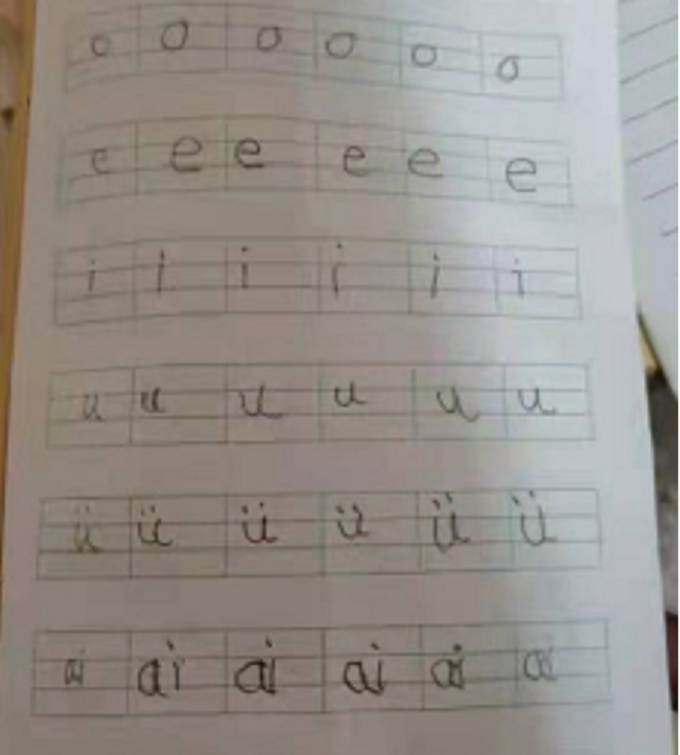 o o o o o o
e e e e e e
i i i i i i
u u u u u u
ü ü ü ü ü ü
ai ai ai ai ai ai